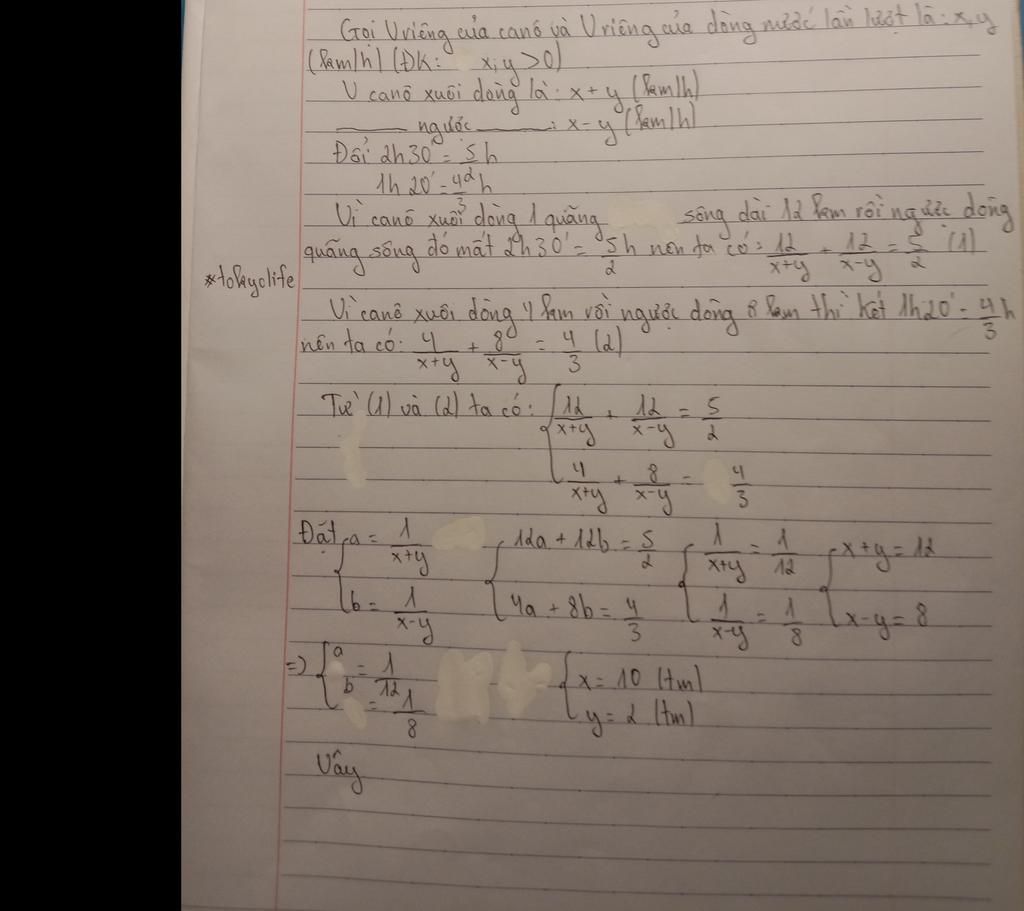 Gọi V riêng của canô và V riêng của dòng nước lần lượt là: x, y
(km/h) (ĐK: x, y > 0)
V canô xuôi dòng là: x + y (km/h)
——— ngược ———: x - y (km/h)
Đổi 2h30' = 5/2 h
1h20' = 4/3 h
Vì canô xuôi dòng 1 quãng sông dài 12 km rồi ngược dòng
quãng sông đó mất 2h30' = 5/2 h nên ta có: 12/(x+y) + 12/(x-y) = 5/2 (1)
*tokyolife
Vì canô xuôi dòng 4 km rồi ngược dòng 8 km thì hết 1h20' = 4/3 h
nên ta có: 4/(x+y) + 8/(x-y) = 4/3 (2)
Từ (1) và (2) ta có: { 12/(x+y) + 12/(x-y) = 5/2
4/(x+y) + 8/(x-y) = 4/3
Đặt { a = 1/(x+y) { 12a + 12b = 5/2 { 1/(x+y) = 1/12 { x + y = 12
b = 1/(x-y) 4a + 8b = 4/3 1/(x-y) = 1/8 x - y = 8
=> { a = 1/12 { x = 10 (tm)
b = 1/8 y = 2 (tm)
Vậy